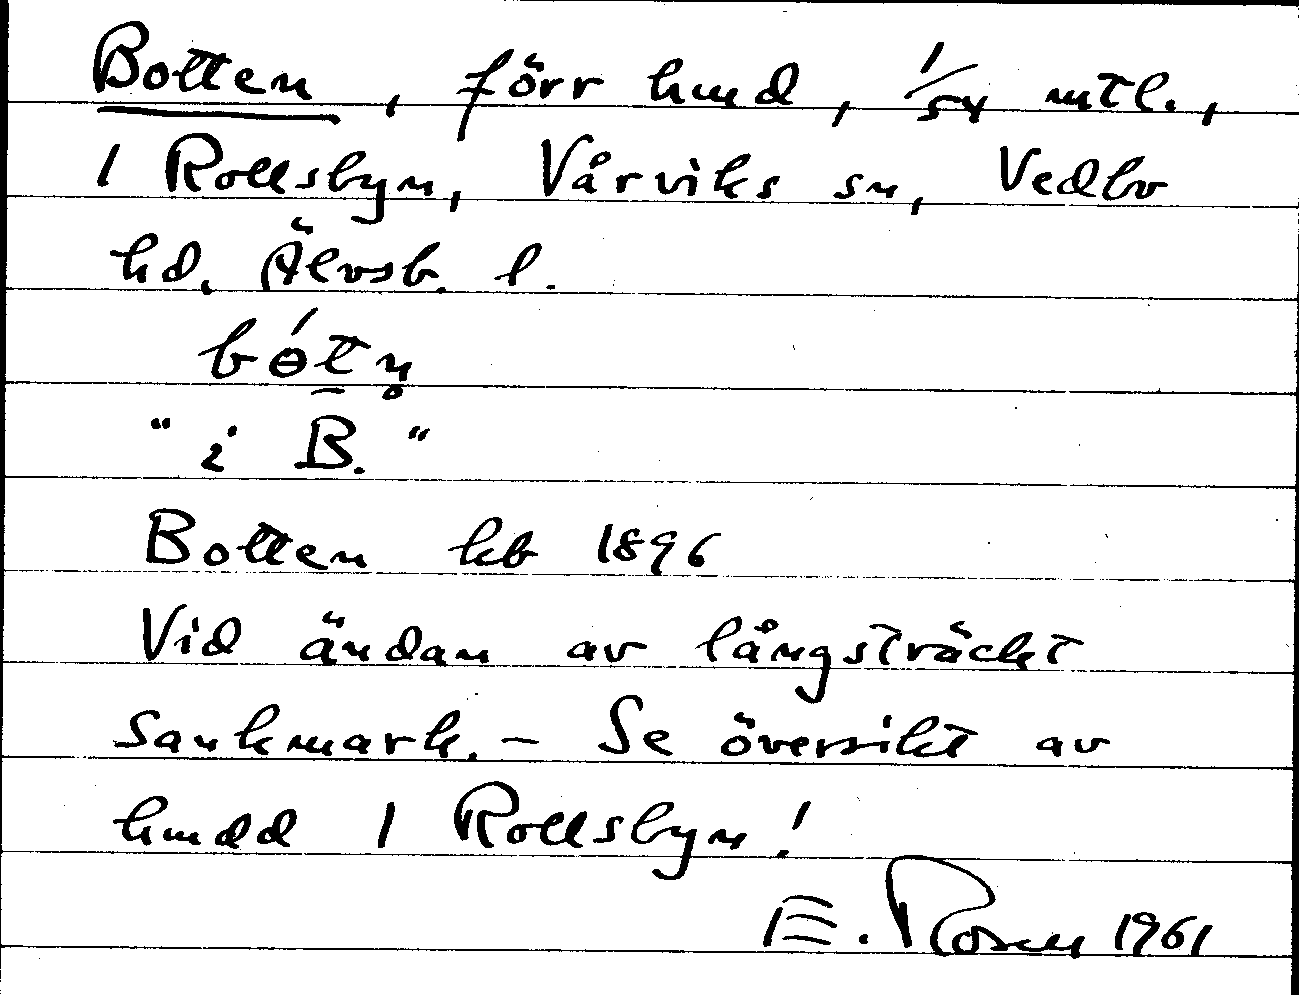 Botten, förr hmd, 1/54 mtl.,
1 Rollsbyn, Vårviks sn, Vedbo
hd. Älvsb. l.
bó̱tn̥
"i B."
Botten kb 1896
Vid ändan av långsträckt
sankmark. – Se översikt av
hmdd 1 Rollsbyn!
E. Rosen 1961